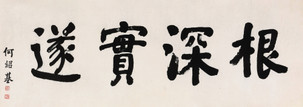 根深實遂
何紹基